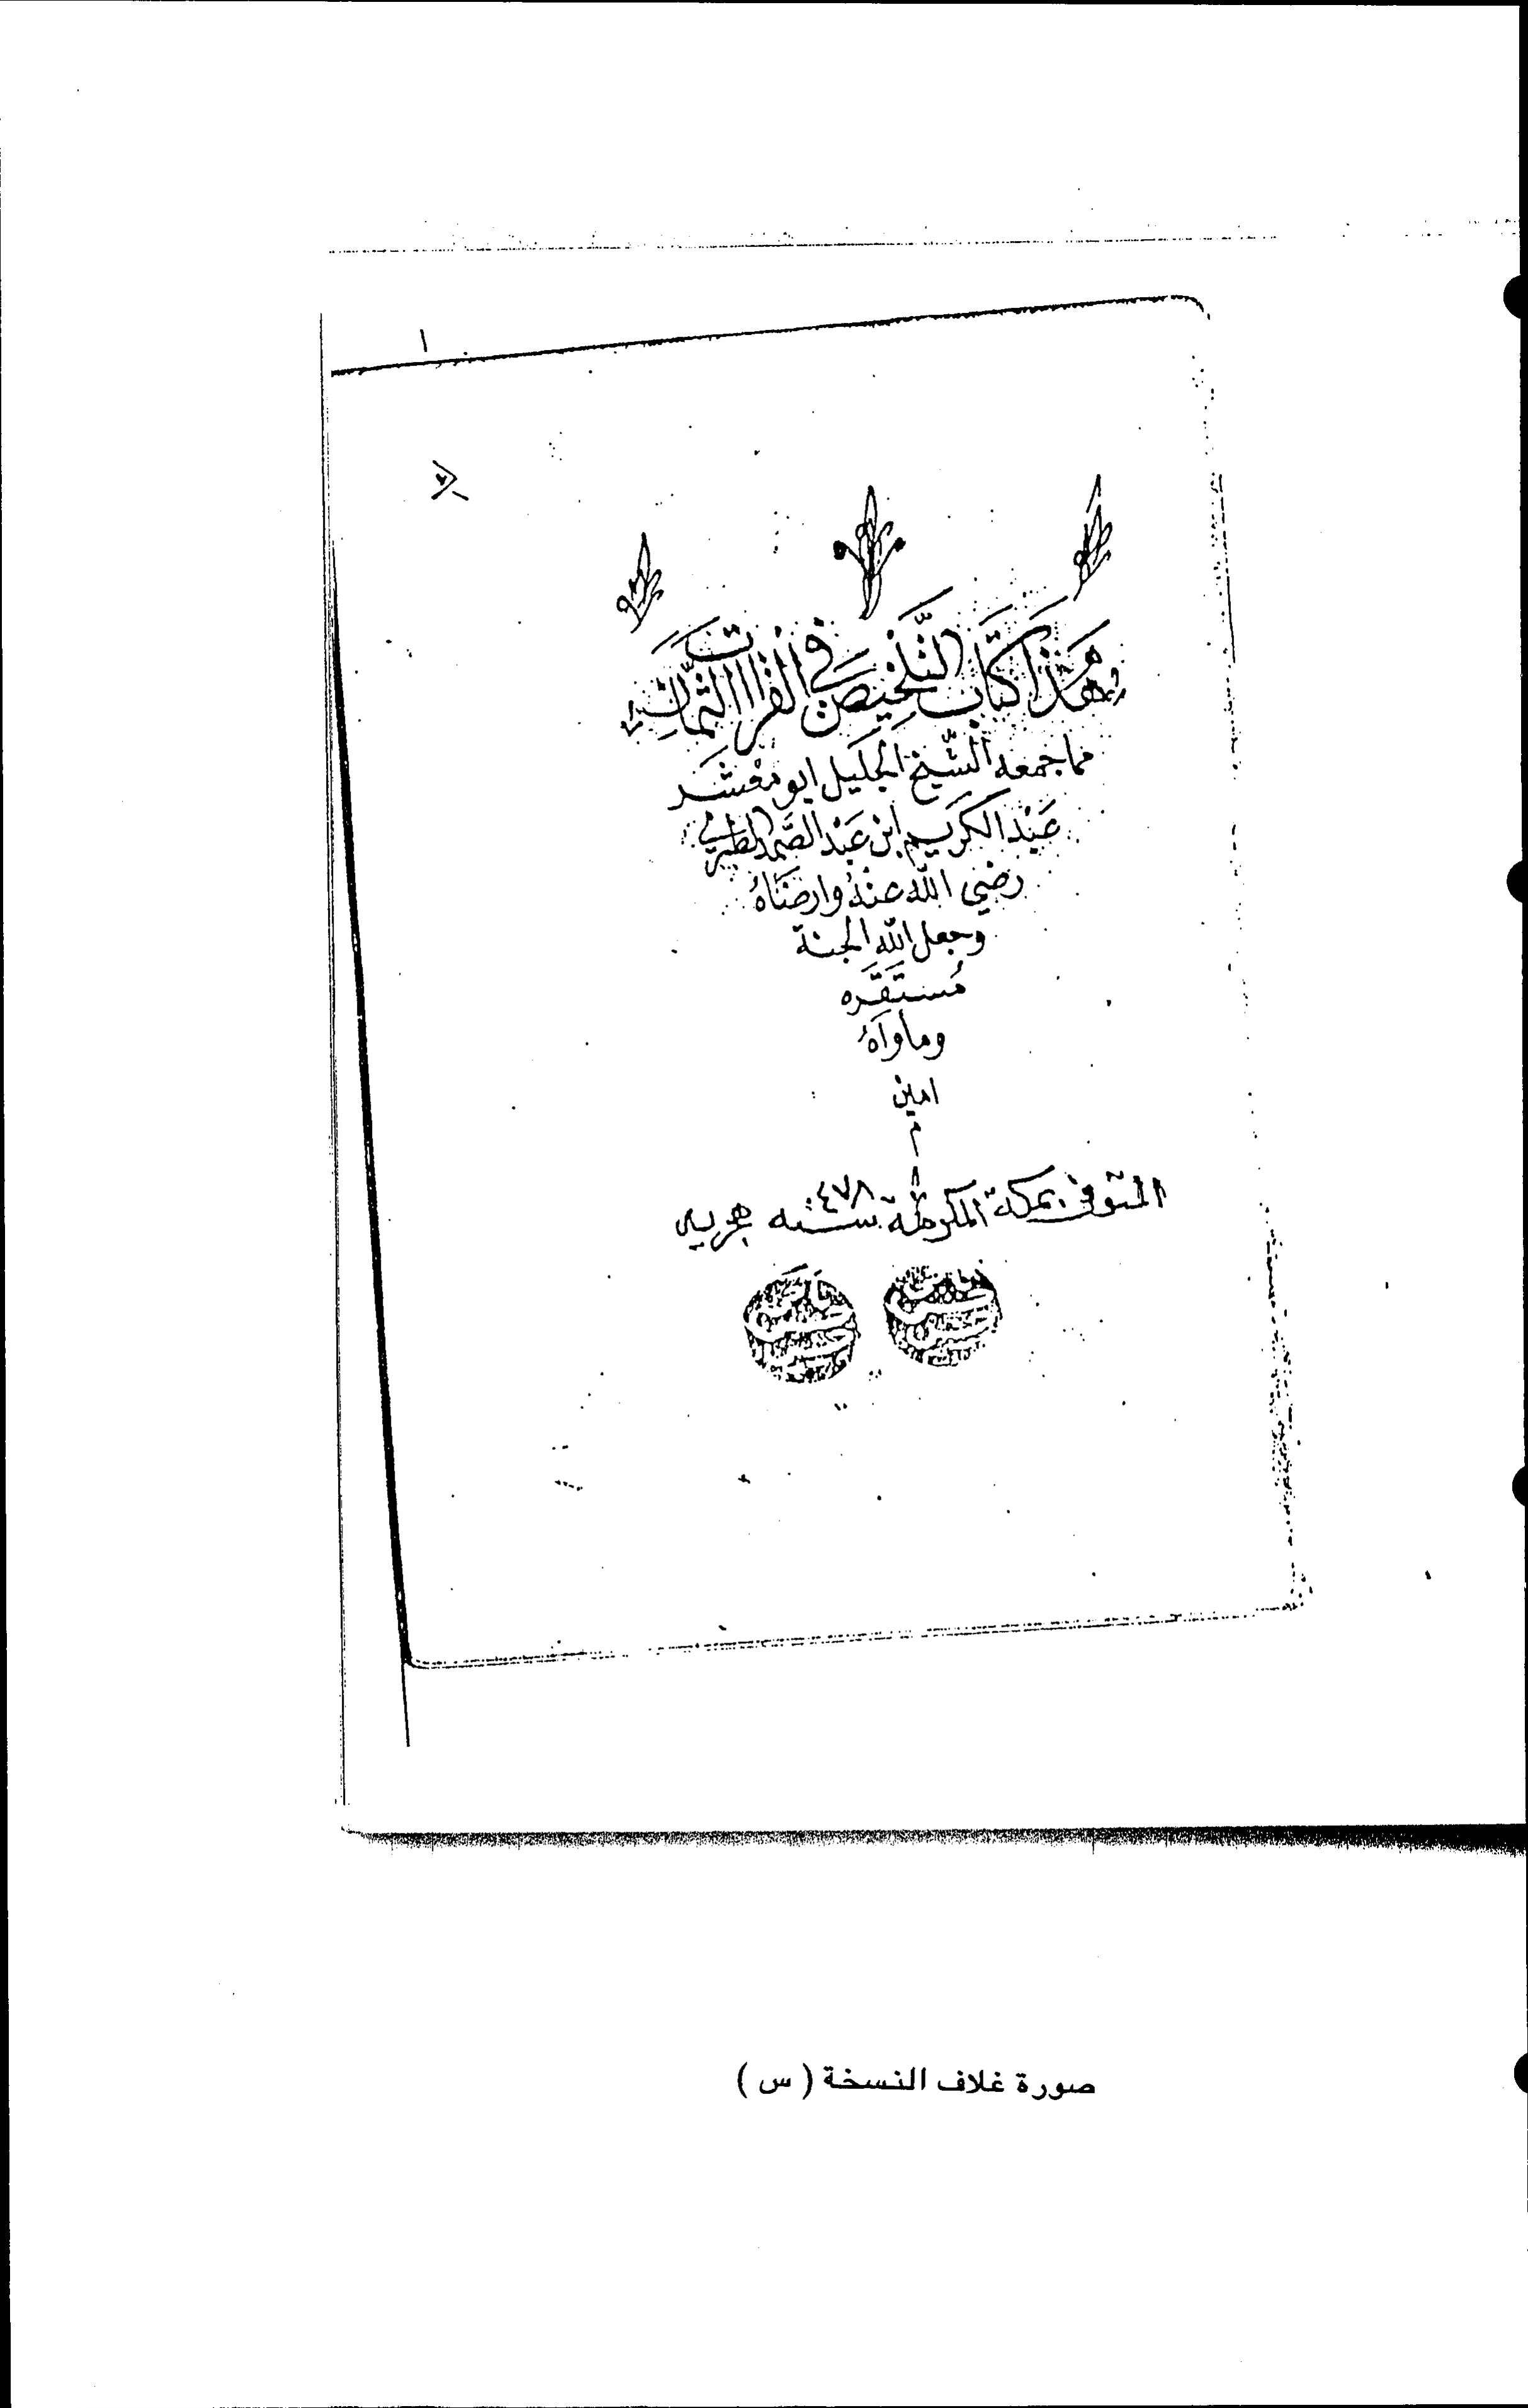 ١
هَذَا كِتَابُ التَّلْخِيصِ فِي القراات الثَّمَانِ
مما جمعه الشَّيخ الجَلَيل ابو مَعْشَر
عَبْد الكَريم ابن عَبْد الصَّمَد الطبري
رضي الله عَنْهُ وارضَاهُ
وجعل الله الجنة
مُستَقَرَّه
ومأواهُ
امين
م
المتوفى بمكة المكرمة سنه ٤٧٨ هجريه
صورة غلاف النسخة ( س )